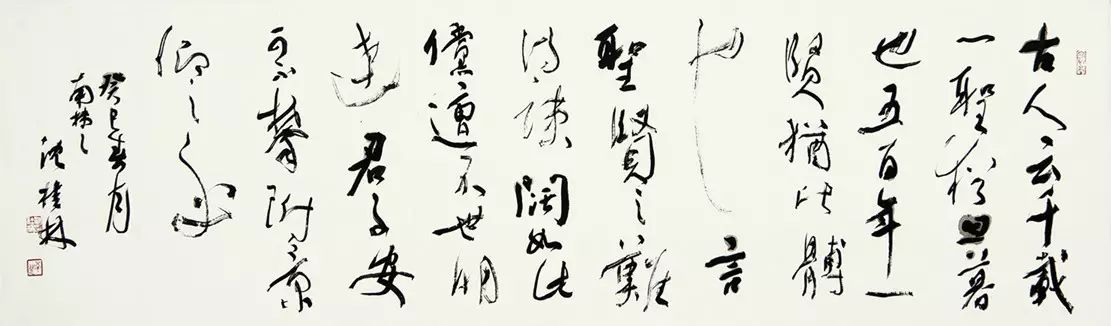 古人云千載
一聖猶旦暮
也五百年一
賢猶比髆
也言
聖賢之難
得疎闊如此
儻遭不世明
達君子安
可不攀附景
仰之乎
癸巳春月
沈桂林